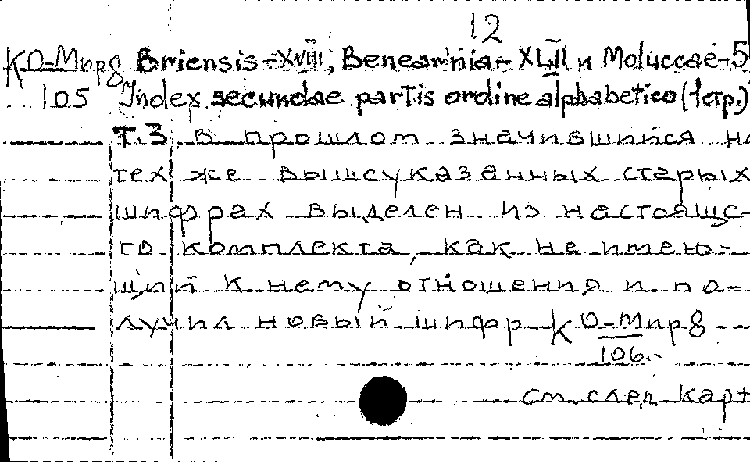 12
КО-Мир8 Briensis-XVIII, Benearnia-XLII и Moluccae-5
105 Index secundae partis ordine alphabetico (1стр.)
Т.3 в прошлом значившийся на
тех же вышеуказанных старых
шифрах выделен из настояще-
го комплекта, как не имею-
щий к нему отношения и по-
лучил новый шифр КО-Мир8
106.
см. след карт